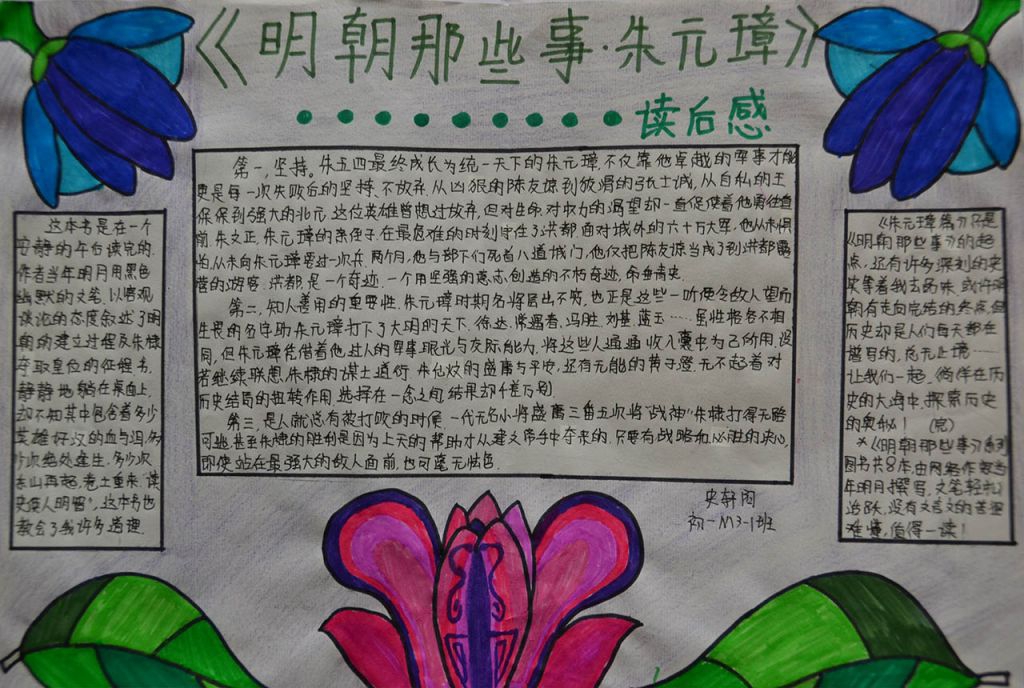 《明朝那些事·朱元璋》
读后感
这本书是在一个
安静的午台读完的.
作者当年明月用黑色
幽默的文笔.以客观
谈论的态度叙述了明
朝的建立过程及朱棣
夺取皇位的征程.书,
静静地躺在桌面上,
却不知其中包含着多少
英雄好汉的血与泪.多
少次绝处逢生,多少次
东山再起,卷土重来."读
史使人明智",这本书也
教会了我许多道理.
第一,坚持。朱五四最终成长为统一天下的朱元璋,不仅靠他卓越的军事才能
更是每一次失败后的坚持,不放弃.从凶狠的陈友谅到狡猾的张士诚,从自私的王
保保到强大的北元,这位英雄曾想过放弃,但对生命,对权力的渴望却一直促使着他勇往直
前.朱文正,朱元璋的亲侄子,在最危难的时刻守住了洪都,面对城外的六十万大军,他从未惧
怕,从未向朱元璋要过一次兵,两个月,他与部下们死着八道城门,他仅把陈友谅当成了到洪都露
营的游客.洪都,是一个奇迹,一个用坚强的意志,创造的不朽奇迹,命垂青史.
第二,知人善用的重要性.朱元璋时期名将层出不穷,也正是这些一听便令敌人望而
生畏的名字助朱元璋打下了大明的天下.徐达,常遇春,冯胜,刘基,蓝玉……虽性格各不相
同,但朱元璋凭借着他过人的军事眼光与交际能力,将这些人通通收入囊中为己所用.设
若继续联想,朱棣的谋士道衍,朱允炆的盛庸与平安,还有无能的黄子澄,无不起着对
历史结局的扭转作用,选择在一念之间,结果却千差万别.
第三,是人就总有被打败的时候.一代无名小将盛庸三番五次将"战神"朱棣打得无路
可逃,甚至朱棣的胜利是因为上天的帮助才从建文帝手中夺来的.只要有战略和必胜的决心,
即使站在最强大的敌人面前,也可毫无怯色.
史轩
初一M3-1班
《朱元璋篇》只是
《明朝那些事》的起
点,还有许多深刻的史
实等着我去品味.或许明
朝有走向完结的终点,但
历史却是人们每天都在
谱写的,危无止境……
让我们一起,徜徉在历
史的大海中,探索历史
的奥秘! (完)
*《明朝那些事》系列
图书共8本,由网络作家当
年明月撰写,文笔轻松
活跃,没有文言文的苦涩
难懂,值得一读!